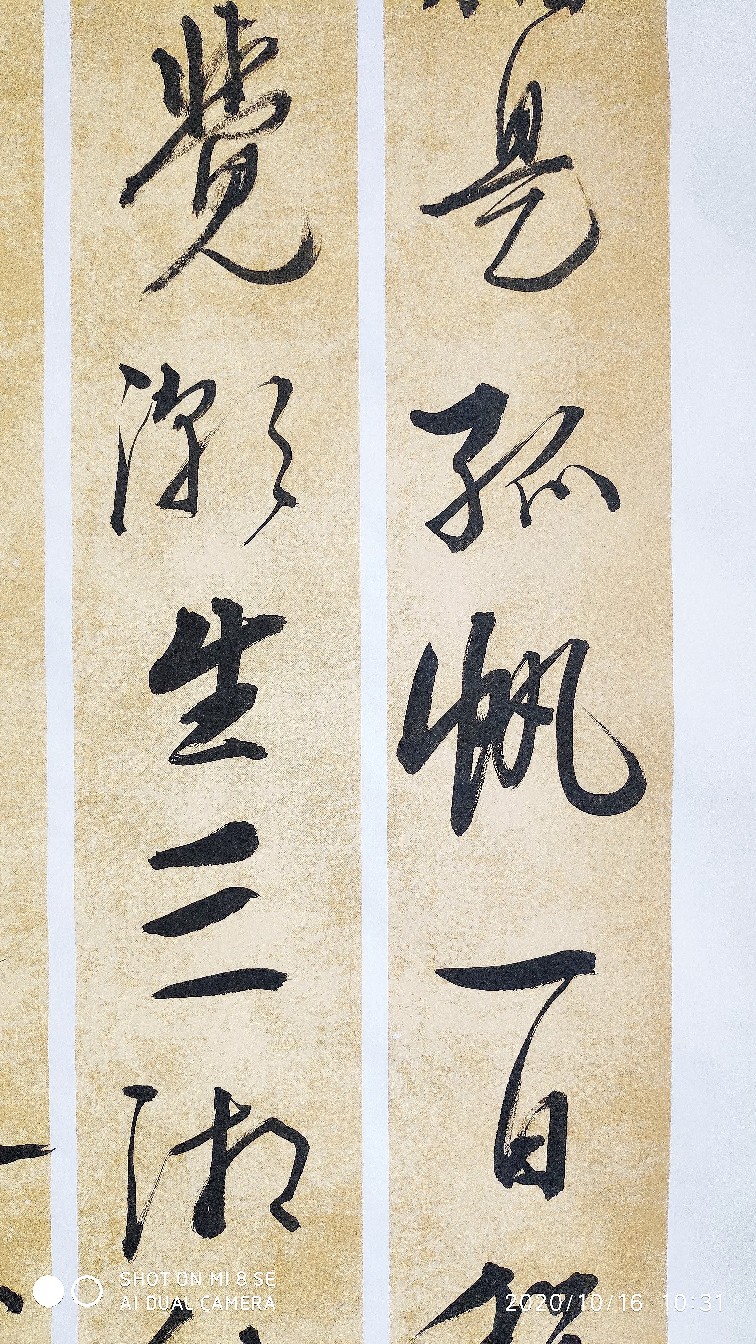 是孤帆百
覺 生三湘
SHOT ON MI 8 SE
AI DUAL CAMERA
2020/10/16 10:31